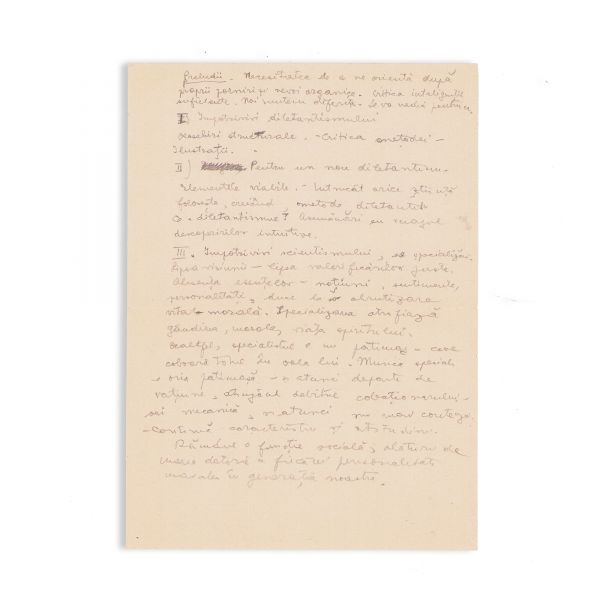 Preludii. Necesitatea de a ne orienta după
proprii porniri și nevoi organice. Critica inteligenții
suficiente. Noi suntem diferiți. Se va vedea pentru ce.
I. Împotrivirii diletantismului
Deosebiri structurale. - Critica metodei -
Ilustrații. -
II) Pentru un nou diletantism.
Elementele viabile. - Întrucât orice știință
folosește, creând, metode diletante
diletantismul? Asemănări cu
descoperirilor intuitive.
III. Împotrivirii scientismului,
Lipsa viziunii - lipsa valorificărilor juste.
Absența esențelor - noțiunii, sentimente,
personalității, duce la abrutizarea
morală. Specializarea atrofiază
gândirea, morala, viața spiritului.
Dealtfel, specialistul e un pătimaș - care
coboară totul la oala lui. Munca
e ori pătimașă - și atunci departe de
rațiune, cobaționarului -
ori mecanică, și atunci nu mai contează
- continuă caracteristici și atitudini.
Rămâne o funcție socială, alături de
marea datorie a fiecărei personalități
în generația noastră.